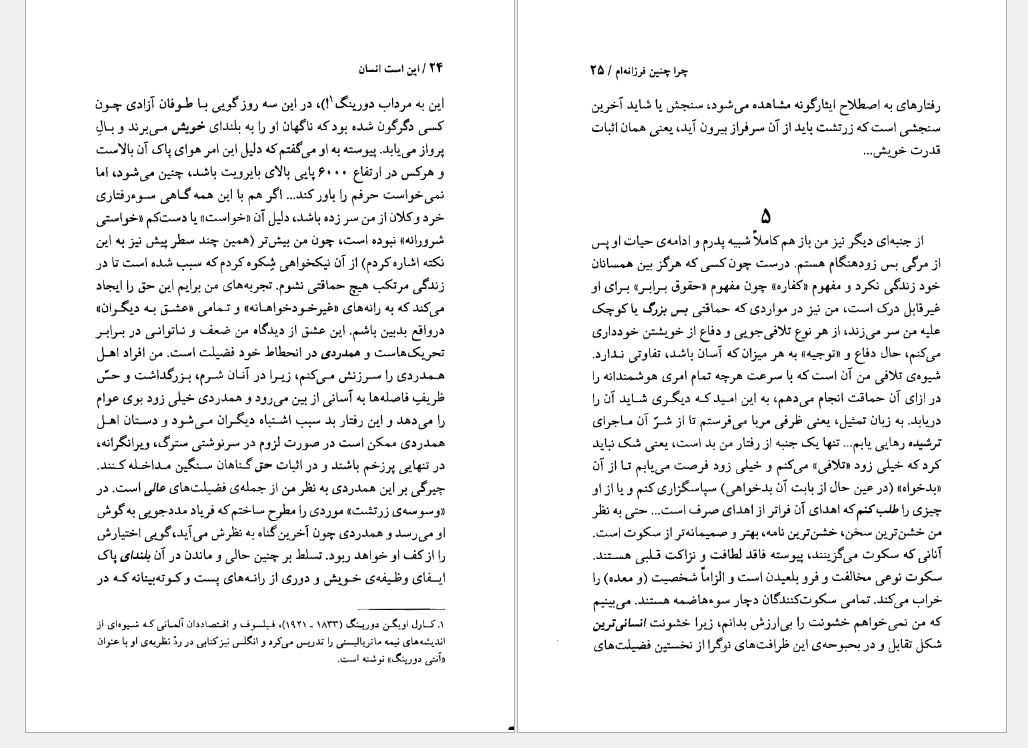 ۲۴ / این است انسان
این به مرداب دورینگ۱!)، در این سه روز گویی با طوفان آزادی چون
کسی دگرگون شده بود که ناگهان او را به بلندای خویش می‌برند و بالِ
پرواز می‌یابد. پیوسته به او می‌گفتم که دلیل این امر هوای پاک آن بالاست
و هرکس در ارتفاع ۶۰۰۰ پایی بالای بایرویت باشد، چنین می‌شود، اما
نمی‌خواست حرفم را باور کند... اگر هم با این همه گاهی سوءرفتاری
خرد و کلان از من سر زده باشد، دلیل آن «خواست» یا دست‌کم «خواستی
شرورانه» نبوده است، چون من بیش‌تر (همین چند سطر پیش نیز به این
نکته اشاره کردم) از آن نیکخواهی شِکوه کردم که سبب شده است تا در
زندگی مرتکب هیچ حماقتی نشوم. تجربه‌های من برایم این حق را ایجاد
می‌کند که به رانه‌های «غیرخودخواهانه» و تمامی «عشق به دیگران»
درواقع بدبین باشم. این عشق از دیدگاه من ضعف و ناتوانی در برابر
تحریک‌هاست و همدردی در انحطاط خود فضیلت است. من افراد اهل
همدردی را سرزنش می‌کنم، زیرا در آنان شرم، بزرگداشت و حسّ
ظریفِ فاصله‌ها به آسانی از بین می‌رود و همدردی خیلی زود بوی عوام
را می‌دهد و این رفتار بد سبب اشتباه دیگران می‌شود و دستان اهل
همدردی ممکن است در صورت لزوم در سرنوشتی سترگ، ویرانگرانه،
در تنهایی پرزخم باشند و در اثبات حق گناهان سنگین مداخله کنند.
چیرگی بر این همدردی به نظر من از جمله‌ی فضیلت‌های عالی است. در
«وسوسه‌ی زرتشت» موردی را مطرح ساختم که فریاد مددجویی به گوش
او می‌رسد و همدردی چون آخرین گناه به نظرش می‌آید، گویی اختیارش
را از کف او خواهد ربود. تسلط بر چنین حالی و ماندن در آن بلندای پاک
ایفای وظیفه‌ی خویش و دوری از رانه‌های پست و کوته‌بینانه که در
۱. کارل اویگن دورینگ (۱۸۳۳ ـ ۱۹۲۱)، فیلسوف و اقتصاددان آلمانی که شیوه‌ای از
اندیشه‌های نیمه ماتریالیستی را تدریس می‌کرد و انگلس نیز کتابی در ردّ نظریه‌ی او با عنوان
«آنتی دورینگ» نوشته است.
چرا چنین فرزانه‌ام / ۲۵
رفتارهای به اصطلاح ایثارگونه مشاهده می‌شود، سنجش یا شاید آخرین
سنجشی است که زرتشت باید از آن سرفراز بیرون آید، یعنی همان اثبات
قدرت خویش...
۵
از جنبه‌ای دیگر نیز من باز هم کاملاً شبیه پدرم و ادامه‌ی حیات او پس
از مرگی بس زودهنگام هستم. درست چون کسی که هرگز بین همسانان
خود زندگی نکرد و مفهوم «کفاره» چون مفهوم «حقوق برابر» برای او
غیرقابل درک است، من نیز در مواردی که حماقتی بس بزرگ یا کوچک
علیه من سر می‌زند، از هر نوع تلافی‌جویی و دفاع از خویشتن خودداری
می‌کنم، حال دفاع و «توجیه» به هر میزان که آسان باشد، تفاوتی ندارد.
شیوه‌ی تلافی من آن است که با سرعت هرچه تمام امری هوشمندانه را
در ازای آن حماقت انجام می‌دهم، به این امید که دیگری شاید آن را
دریابد. به زبان تمثیل، یعنی ظرفی مربا می‌فرستم تا از شرّ آن ماجرای
ترشیده رهایی یابم... تنها یک جنبه از رفتار من بد است، یعنی شک نباید
کرد که خیلی زود «تلافی» می‌کنم و خیلی زود فرصت می‌یابم تا از آن
«بدخواه» (در عین حال از بابت آن بدخواهی) سپاسگزاری کنم و یا از او
چیزی را طلب کنم که اهدای آن فراتر از اهدای صرف است... حتی به نظر
من خشن‌ترین سخن، خشن‌ترین نامه، بهتر و صمیمانه‌تر از سکوت است.
آنانی که سکوت می‌گزینند، پیوسته فاقد لطافت و نزاکت قلبی هستند.
سکوت نوعی مخالفت و فرو بلعیدن است و الزاماً شخصیت (و معده) را
خراب می‌کند. تمامی سکوت‌کنندگان دچار سوءهاضمه هستند. می‌بینیم
که من نمی‌خواهم خشونت را بی‌ارزش بدانم، زیرا خشونت انسانی‌ترین
شکل تقابل و در بحبوحه‌ی این ظرافت‌های نوگرا از نخستین فضیلت‌های